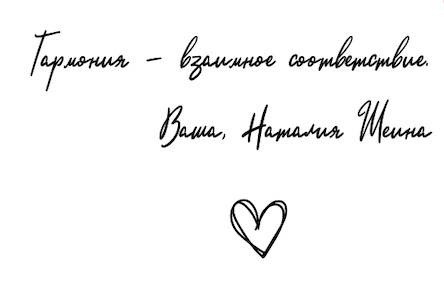 Гармония – взаимное соответствие.
Ваша, Наталия Шеина